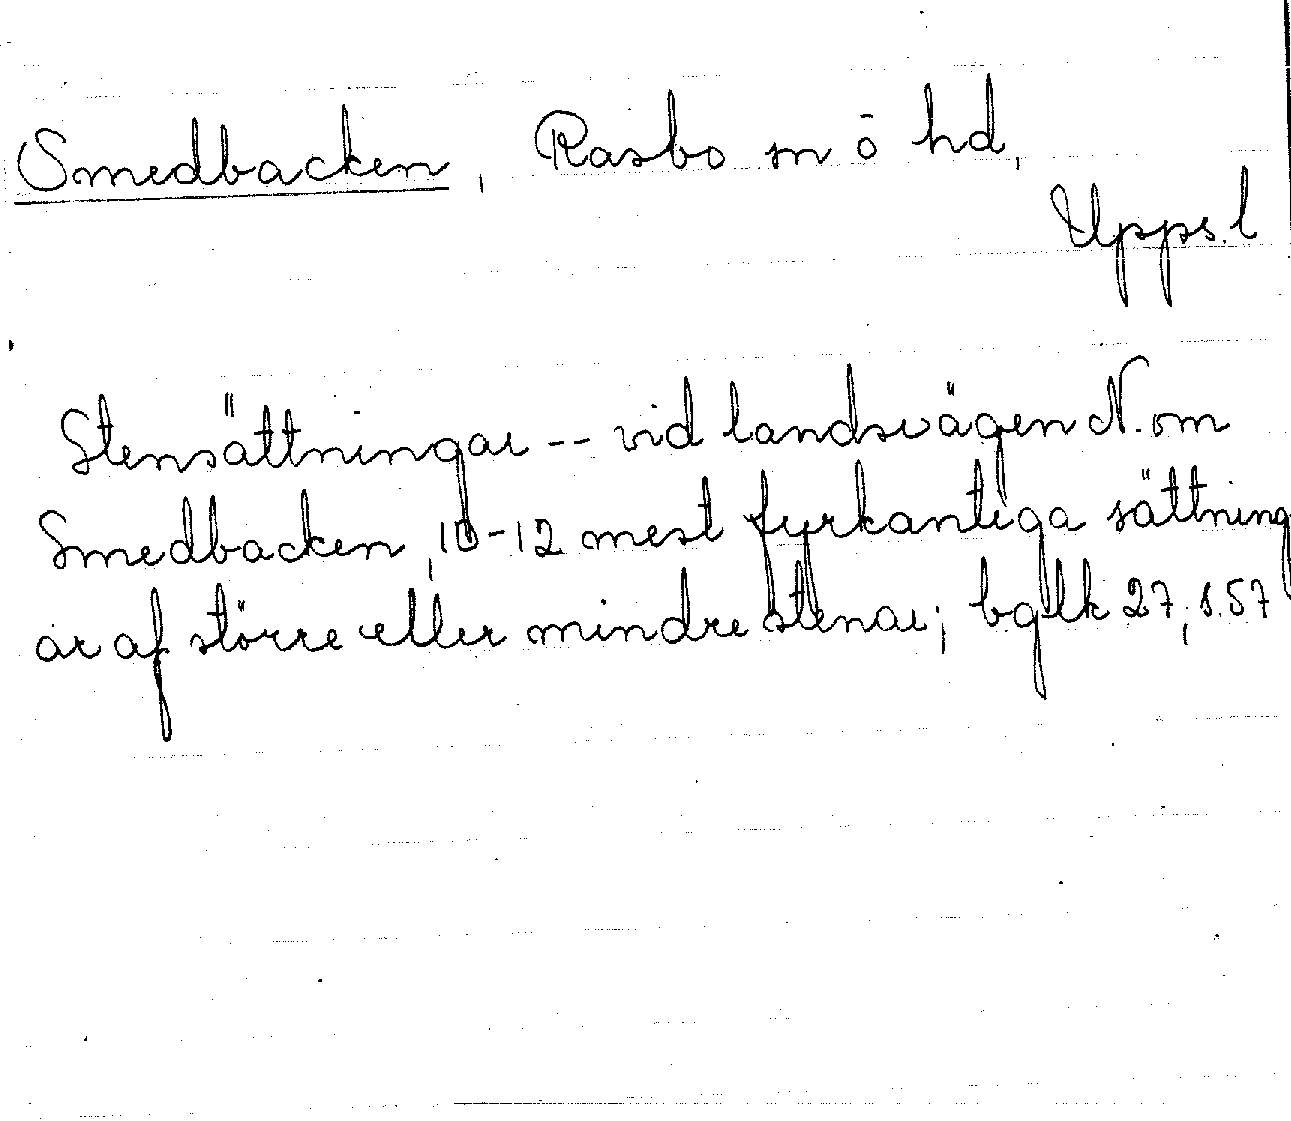 Smedbacken, Rasbo sn o hd,
Upps. l
Stensättningar -- vid landsvägen N. om
Smedbacken, 10-12 mest fyrkantiga sättning
ar af större eller mindre stenar; bglk 27, s. 57